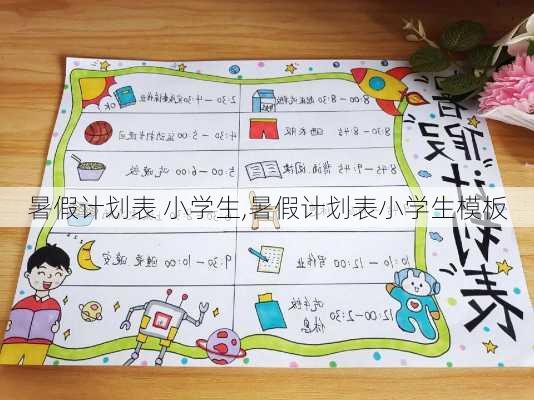 暑假计划表
8:00—8:30 起床洗漱
2:30—4:30
OK
8:30—8:45
4:30—5:00
8:45—9:45 阅读
5:00—6:00 吃晚饭
暑假计划表 小学生,暑假计划表小学生模板
10:10—12:00 写作业
9:30—10:00 睡觉 晚安
12:00—2:30 吃午饭
休息